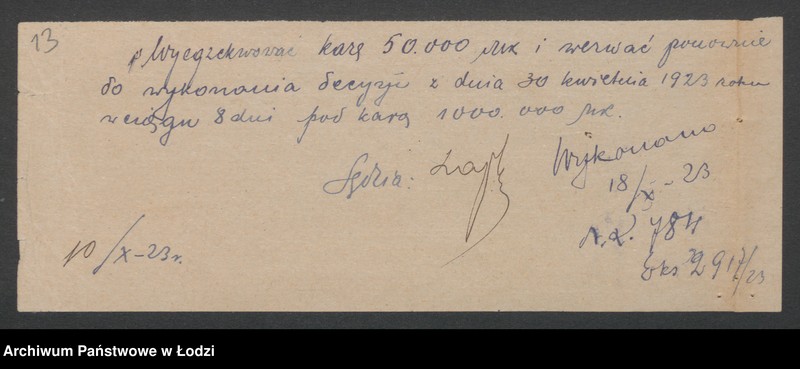 13
Wyegzekwować karę 50.000 Mk i wezwać ponownie
do wykonania decyzji z dnia 30 kwietnia 1923 roku
w ciągu 8 dni pod karą 1000.000 Mk.
Sędzia:
Wykonano
18/X-23
10/X-23 r.
784
Archiwum Państwowe w Łodzi